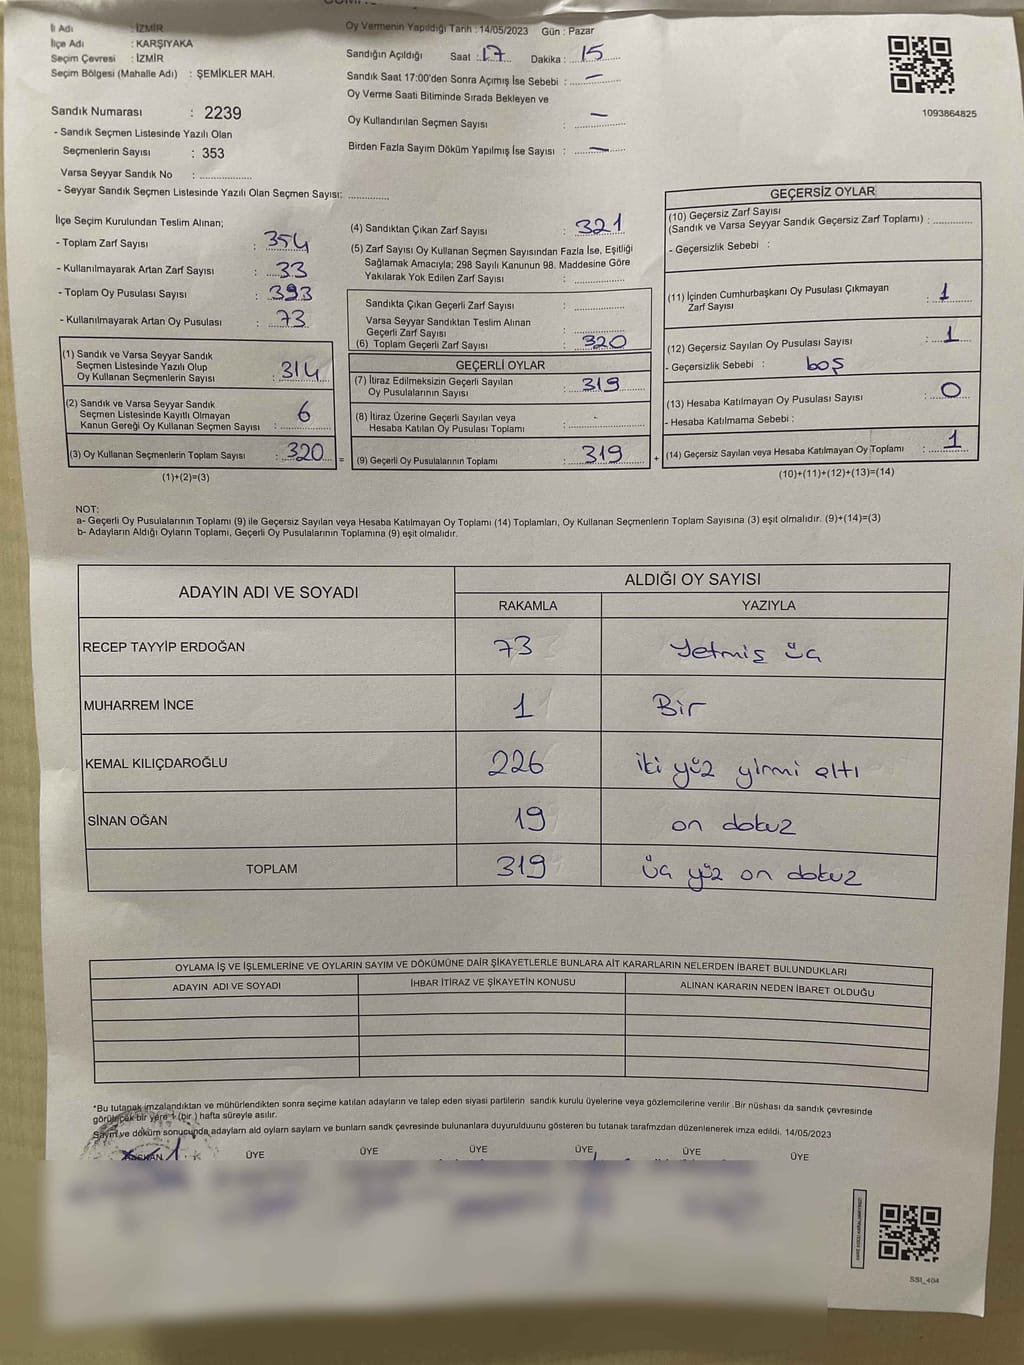 İl Adı : İZMİR
İlçe Adı : KARŞIYAKA
Seçim Çevresi : İZMİR
Seçim Bölgesi (Mahalle Adı) : ŞEMİKLER MAH.
Sandık Numarası : 2239
- Sandık Seçmen Listesinde Yazılı Olan
Seçmenlerin Sayısı : 353
Varsa Seyyar Sandık No : ..................
- Seyyar Sandık Seçmen Listesinde Yazılı Olan Seçmen Sayısı: ..............
Oy Vermenin Yapıldığı Tarih : 14/05/2023 Gün : Pazar
Sandığın Açıldığı Saat : 17 Dakika : 15
Sandık Saat 17:00'den Sonra Açımış İse Sebebi : —
Oy Verme Saati Bitiminde Sırada Bekleyen ve
Oy Kullandırılan Seçmen Sayısı : —
Birden Fazla Sayım Döküm Yapılmış İse Sayısı : —
1093864825
İlçe Seçim Kurulundan Teslim Alınan;
- Toplam Zarf Sayısı : 354
- Kullanılmayarak Artan Zarf Sayısı : 33
- Toplam Oy Pusulası Sayısı : 393
- Kullanılmayarak Artan Oy Pusulası : 73
(1) Sandık ve Varsa Seyyar Sandık
Seçmen Listesinde Yazılı Olup
Oy Kullanan Seçmenlerin Sayısı : 314
(2) Sandık ve Varsa Seyyar Sandık
Seçmen Listesinde Kayıtlı Olmayan
Kanun Gereği Oy Kullanan Seçmen Sayısı : 6
(3) Oy Kullanan Seçmenlerin Toplam Sayısı : 320 =
(1)+(2)=(3)
(4) Sandıktan Çıkan Zarf Sayısı : 321
(5) Zarf Sayısı Oy Kullanan Seçmen Sayısından Fazla İse, Eşitliği
Sağlamak Amacıyla; 298 Sayılı Kanunun 98. Maddesine Göre
Yakılarak Yok Edilen Zarf Sayısı : ..............
Sandıkta Çıkan Geçerli Zarf Sayısı : ..............
Varsa Seyyar Sandıktan Teslim Alınan
Geçerli Zarf Sayısı : ..............
(6) Toplam Geçerli Zarf Sayısı : 320
GEÇERLİ OYLAR
(7) İtiraz Edilmeksizin Geçerli Sayılan
Oy Pusulalarının Sayısı : 319
(8) İtiraz Üzerine Geçerli Sayılan veya
Hesaba Katılan Oy Pusulası Toplamı : -
(9) Geçerli Oy Pusulalarının Toplamı : 319 +
GEÇERSİZ OYLAR
(10) Geçersiz Zarf Sayısı
(Sandık ve Varsa Seyyar Sandık Geçersiz Zarf Toplamı) : ............
- Geçersizlik Sebebi :
(11) İçinden Cumhurbaşkanı Oy Pusulası Çıkmayan
Zarf Sayısı : 1
(12) Geçersiz Sayılan Oy Pusulası Sayısı : 1
- Geçersizlik Sebebi : boş
(13) Hesaba Katılmayan Oy Pusulası Sayısı : 0
- Hesaba Katılmama Sebebi :
(14) Geçersiz Sayılan veya Hesaba Katılmayan Oy Toplamı : 1
(10)+(11)+(12)+(13)=(14)
NOT:
a- Geçerli Oy Pusulalarının Toplamı (9) ile Geçersiz Sayılan veya Hesaba Katılmayan Oy Toplamı (14) Toplamları, Oy Kullanan Seçmenlerin Toplam Sayısına (3) eşit olmalıdır. (9)+(14)=(3)
b- Adayların Aldığı Oyların Toplamı, Geçerli Oy Pusulalarının Toplamına (9) eşit olmalıdır.
ADAYIN ADI VE SOYADI ALDIĞI OY SAYISI
RAKAMLA YAZIYLA
RECEP TAYYİP ERDOĞAN 73 Yetmiş üç
MUHARREM İNCE 1 Bir
KEMAL KILIÇDAROĞLU 226 iki yüz yirmi altı
SİNAN OĞAN 19 on dokuz
TOPLAM 319 üç yüz on dokuz
OYLAMA İŞ VE İŞLEMLERİNE VE OYLARIN SAYIM VE DÖKÜMÜNE DAİR ŞİKAYETLERLE BUNLARA AİT KARARLARIN NELERDEN İBARET BULUNDUKLARI
ADAYIN ADI VE SOYADI İHBAR İTİRAZ VE ŞİKAYETİN KONUSU ALINAN KARARIN NEDEN İBARET OLDUĞU
*Bu tutanak imzalandıktan ve mühürlendikten sonra seçime katılan adayların ve talep eden siyasi partilerin sandık kurulu üyelerine veya gözlemcilerine verilir .Bir nüshası da sandık çevresinde
görülecek bir yere 1 (bir ) hafta süreyle asılır.
Sayım ve döküm sonucunda adayların ald oyların sayları ve bunların sandk çevresinde bulunanlara duyurulduunu gösteren bu tutanak tarafmzdan düzenlenerek imza edildi. 14/05/2023
BAŞKAN ÜYE ÜYE ÜYE ÜYE ÜYE ÜYE
SSI_404